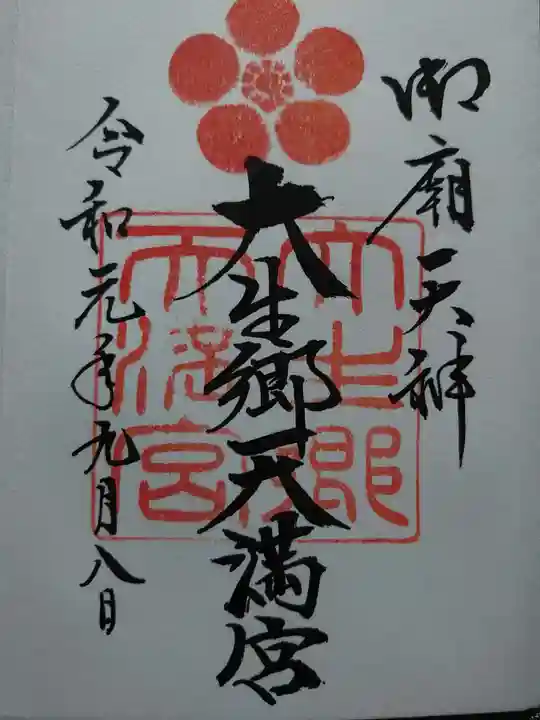 御廟天神
大生郷天満宮
大生郷天満宮
令和元年九月八日